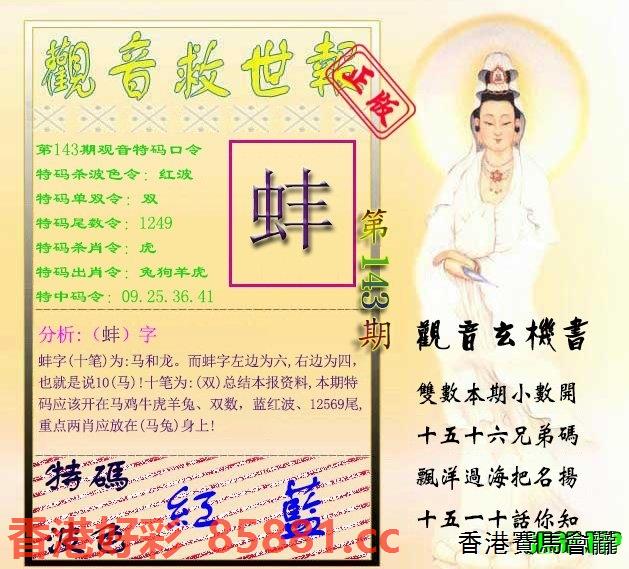 觀音救世報
正版
第143期观音特码口令
特码杀波色令: 红波
特码单双令: 双
特码尾数令: 1249
特码杀肖令: 虎
特码出肖令: 兔狗羊虎
特中码令: 09.25.36.41
蚌
第143期
分析:（蚌）字
蚌字(十笔)为:马和龙。而蚌字左边为六,右边为四,
也就是说10(马)!十笔为:(双)总结本报资料,本期特
码应该开在马鸡牛虎羊兔、双数，蓝红波、12569尾,
重点两肖应放在(马兔)身上!
特碼
波色
紅 藍
觀音玄機書
雙數本期小數開
十五十六兄弟碼
飄洋過海把名揚
十五一十話你知
香港好彩 85881.cc
香港賽馬會